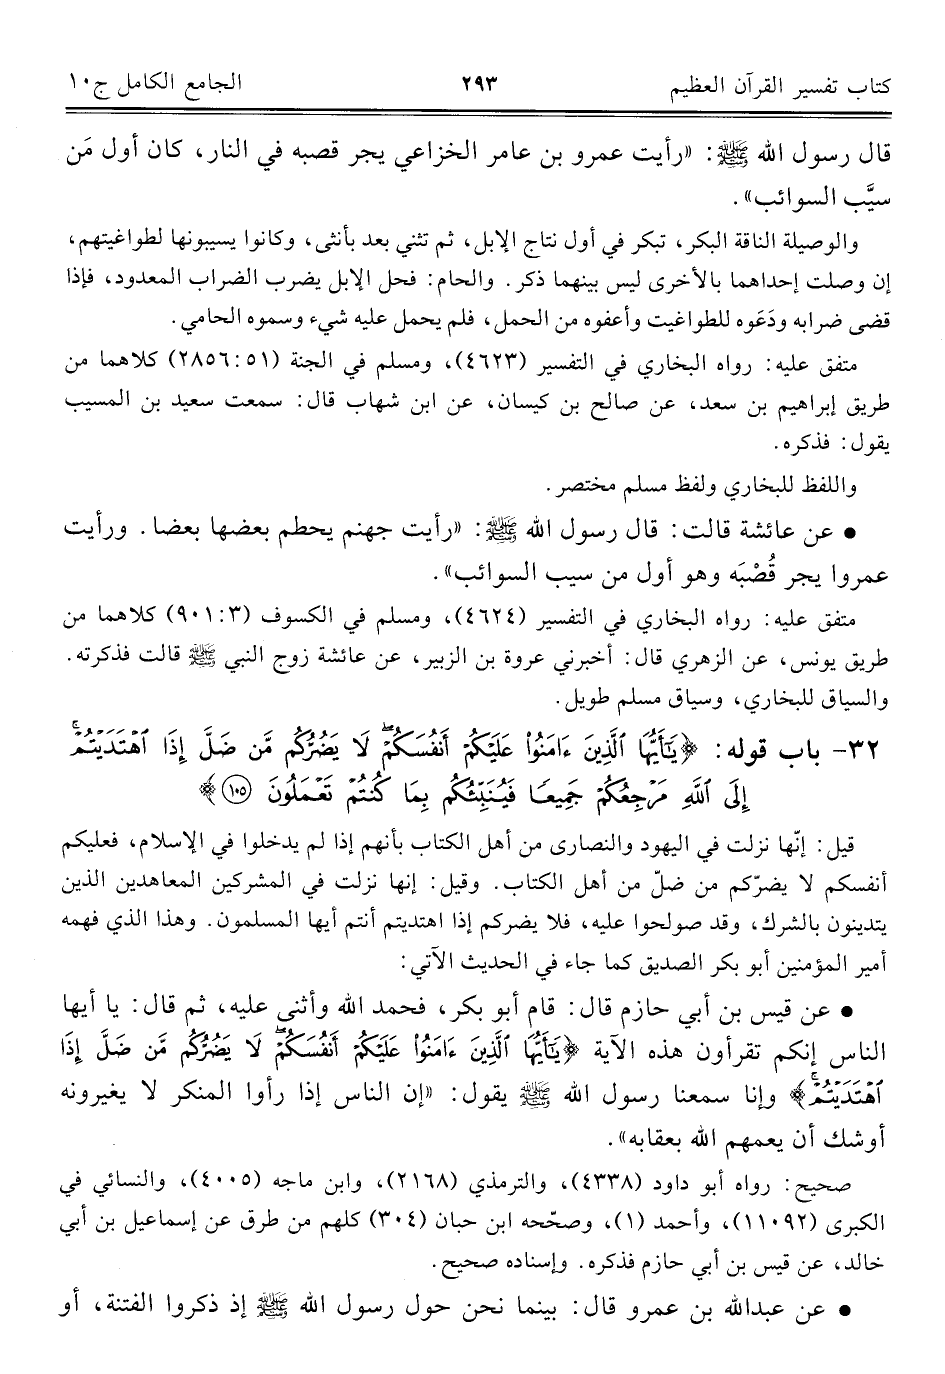 كتاب تفسير القرآن العظيم ٢٩٣ الجامع الكامل ج١٠
قال رسول الله ﷺ: «رأيت عمرو بن عامر الخزاعي يجر قصبه في النار، كان أول مَن
سيَّب السوائب».
والوصيلة الناقة البكر، تبكر في أول نتاج الإبل، ثم تثني بعد بأنثى، وكانوا يسيبونها لطواغيتهم،
إن وصلت إحداهما بالأخرى ليس بينهما ذكر. والحام: فحل الإبل يضرب الضراب المعدود، فإذا
قضى ضرابه ودَعَوه للطواغيت وأعفوه من الحمل، فلم يحمل عليه شيء وسموه الحامي.
متفق عليه: رواه البخاري في التفسير (٤٦٢٣)، ومسلم في الجنة (٢٨٥٦:٥١) كلاهما من
طريق إبراهيم بن سعد، عن صالح بن كيسان، عن ابن شهاب قال: سمعت سعيد بن المسيب
يقول: فذكره.
واللفظ للبخاري ولفظ مسلم مختصر.
• عن عائشة قالت: قال رسول الله ﷺ: «رأيت جهنم يحطم بعضها بعضا. ورأيت
عمروا يجر قُصْبَه وهو أول من سيب السوائب».
متفق عليه: رواه البخاري في التفسير (٤٦٢٤)، ومسلم في الكسوف (٩٠١:٣) كلاهما من
طريق يونس، عن الزهري قال: أخبرني عروة بن الزبير، عن عائشة زوج النبي ﷺ قالت فذكرته.
والسياق للبخاري، وسياق مسلم طويل.
٣٢- باب قوله: ﴿يَٰٓأَيُّهَا ٱلَّذِينَ ءَامَنُوا۟ عَلَيْكُمْ أَنفُسَكُمْ ۖ لَا يَضُرُّكُم مَّن ضَلَّ إِذَا ٱهْتَدَيْتُمْ ۚ
إِلَى ٱللَّهِ مَرْجِعُكُمْ جَمِيعًا فَيُنَبِّئُكُم بِمَا كُنتُمْ تَعْمَلُونَ ١٠٥﴾
قيل: إنّها نزلت في اليهود والنصارى من أهل الكتاب بأنهم إذا لم يدخلوا في الإسلام، فعليكم
أنفسكم لا يضرّكم من ضلّ من أهل الكتاب. وقيل: إنها نزلت في المشركين المعاهدين الذين
يتدينون بالشرك، وقد صولحوا عليه، فلا يضركم إذا اهتديتم أنتم أيها المسلمون. وهذا الذي فهمه
أمير المؤمنين أبو بكر الصديق كما جاء في الحديث الآتي:
• عن قيس بن أبي حازم قال: قام أبو بكر، فحمد الله وأثنى عليه، ثم قال: يا أيها
الناس إنكم تقرأون هذه الآية ﴿يَٰٓأَيُّهَا ٱلَّذِينَ ءَامَنُوا۟ عَلَيْكُمْ أَنفُسَكُمْ ۖ لَا يَضُرُّكُم مَّن ضَلَّ إِذَا
ٱهْتَدَيْتُمْ ۚ﴾ وإنا سمعنا رسول الله ﷺ يقول: «إن الناس إذا رأوا المنكر لا يغيرونه
أوشك أن يعمهم الله بعقابه».
صحيح: رواه أبو داود (٤٣٣٨)، والترمذي (٢١٦٨)، وابن ماجه (٤٠٠٥)، والنسائي في
الكبرى (١١٠٩٢)، وأحمد (١)، وصحّحه ابن حبان (٣٠٤) كلهم من طرق عن إسماعيل بن أبي
خالد، عن قيس بن أبي حازم فذكره. وإسناده صحيح.
• عن عبدالله بن عمرو قال: بينما نحن حول رسول الله ﷺ إذ ذكروا الفتنة، أو